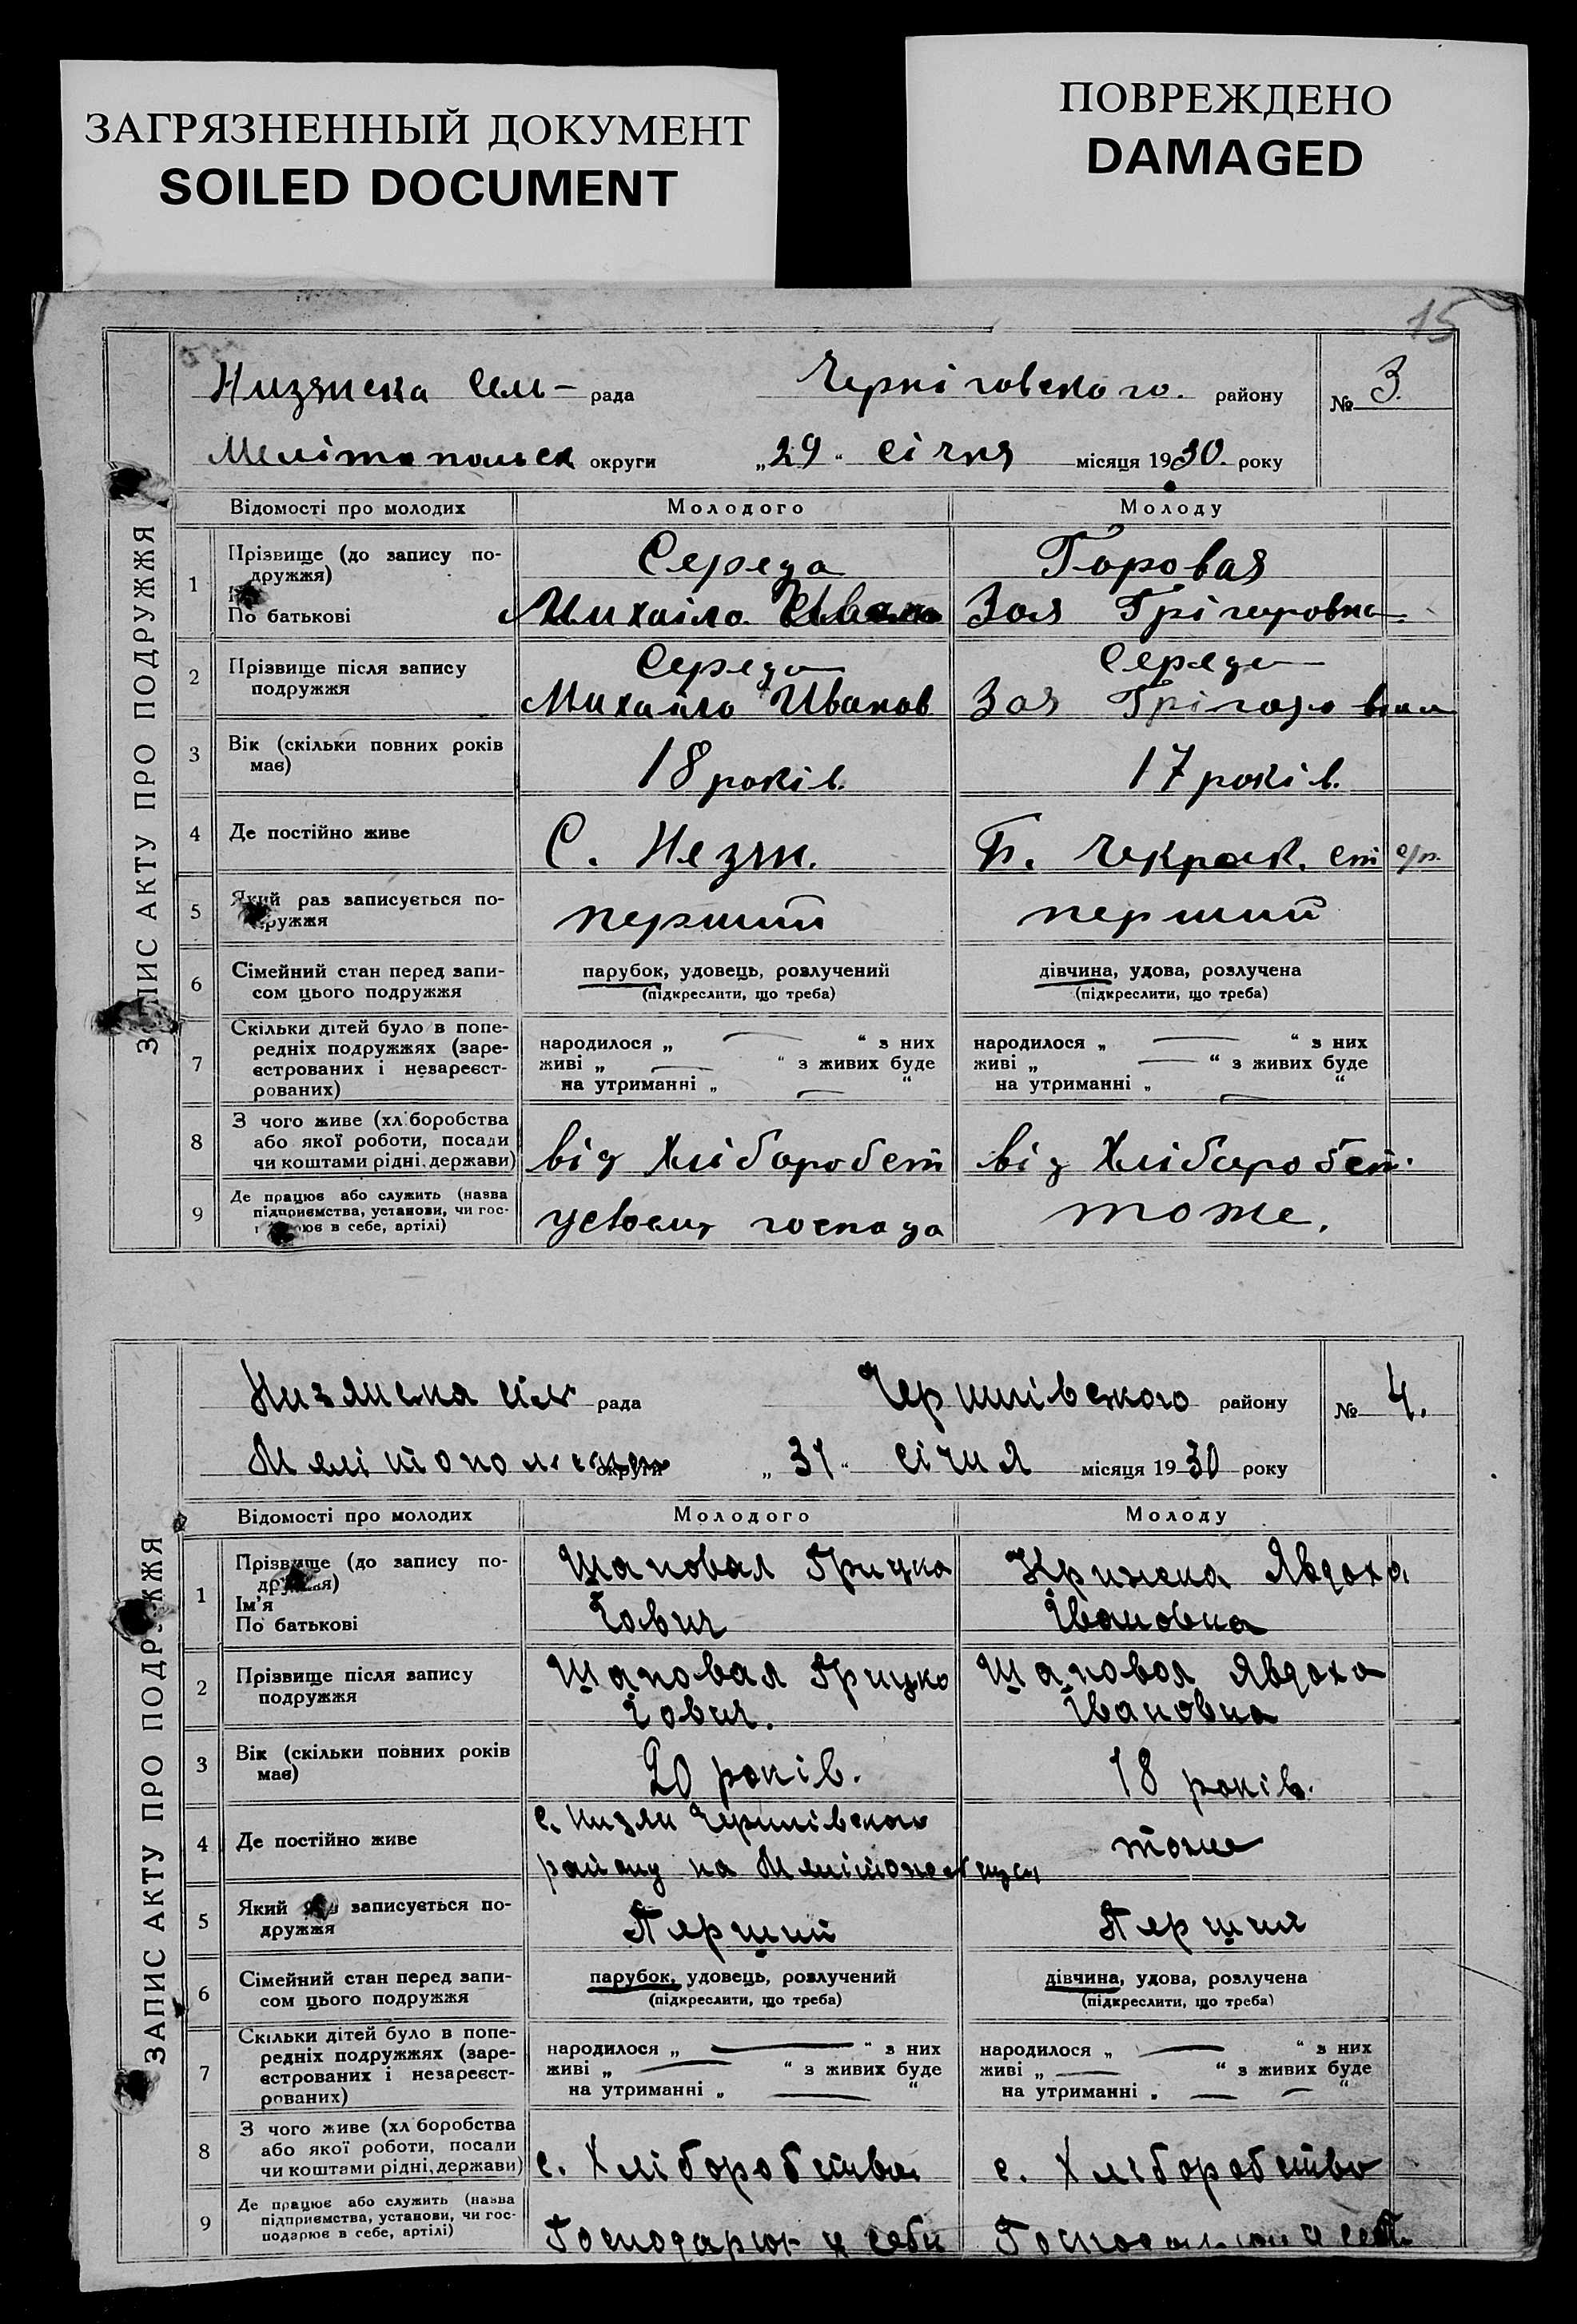 ЗАГРЯЗНЕННЫЙ ДОКУМЕНТ
SOILED DOCUMENT
ПОВРЕЖДЕНО
DAMAGED
15
Низянска сел- рада Черніговского. району № 3.
Мелітопольск округи „29“ січня місяця 1930. року
ЗАПИС АКТУ ПРО ПОДРУЖЖЯ
Відомості про молодих Молодого Молоду
1 Прізвище (до запису по-
дружжя)
По батькові
Середа Горовая
Михаіло Ивано Зоя Грігоровна
2 Прізвище після запису
подружжя
Середа Середа
Михайло Иванов Зоя Грігоровна
3 Вік (скільки повних років
має)
18 років. 17 років.
4 Де постійно живе С. Незян. Б. Чекрак. ст с/р.
5 Який раз записується по-
дружжя
перший перший
6 Сімейний стан перед запи-
сом цього подружжя
парубок, удовець, розлучений дівчина, удова, розлучена
(підкреслити, що треба) (підкреслити, що треба)
7 Скільки дітей було в попе-
редніх подружжях (заре-
єстрованих і незареєст-
рованих)
народилося „ “ з них народилося „ “ з них
живі „ “ з живих буде живі „ “ з живих буде
на утриманні „ “ на утриманні „ “
8 З чого живе (хл боробства
або якої роботи, посади
чи коштами рідні, держави)
від Хліборобст від Хліборобст.
9 Де працює або служить (назва
підприємства, установи, чи гос-
ює в себе, артілі)
усвоему господа тоже.
Низянска сіл рада Чернигівського району № 4.
округи „31“ січня місяця 1930 року
ЗАПИС АКТУ ПРО ПОДРУЖЖЯ
Відомості про молодих Молодого Молоду
1 Прізвище (до запису по-
дружжя)
Ім'я
По батькові
Шаповал Грицко Явдоха
Іович Івановна
2 Прізвище після запису
подружжя
Шаповал Грицко Шаповал Явдоха
Іович. Івановна
3 Вік (скільки повних років
має)
20 років. 18 років.
4 Де постійно живе
с. Низяни Чернигівского тоже
району на
5 Який раз записується по-
дружжя
Перший Перший
6 Сімейний стан перед запи-
сом цього подружжя
парубок, удовець, розлучений дівчина, удова, розлучена
(підкреслити, що треба) (підкреслити, що треба)
7 Скільки дітей було в попе-
редніх подружжях (заре-
єстрованих і незареєст-
рованих)
народилося „ “ з них народилося „ “ з них
живі „ “ з живих буде живі „ “ з живих буде
на утриманні „ “ на утриманні „ “
8 З чого живе (хл боробства
або якої роботи, посади
чи коштами рідні, держави)
с. Хліборобства с. Хліборобство
9 Де працює або служить (назва
підприємства, установи, чи гос-
подарює в себе, артілі)
Господарює у себи